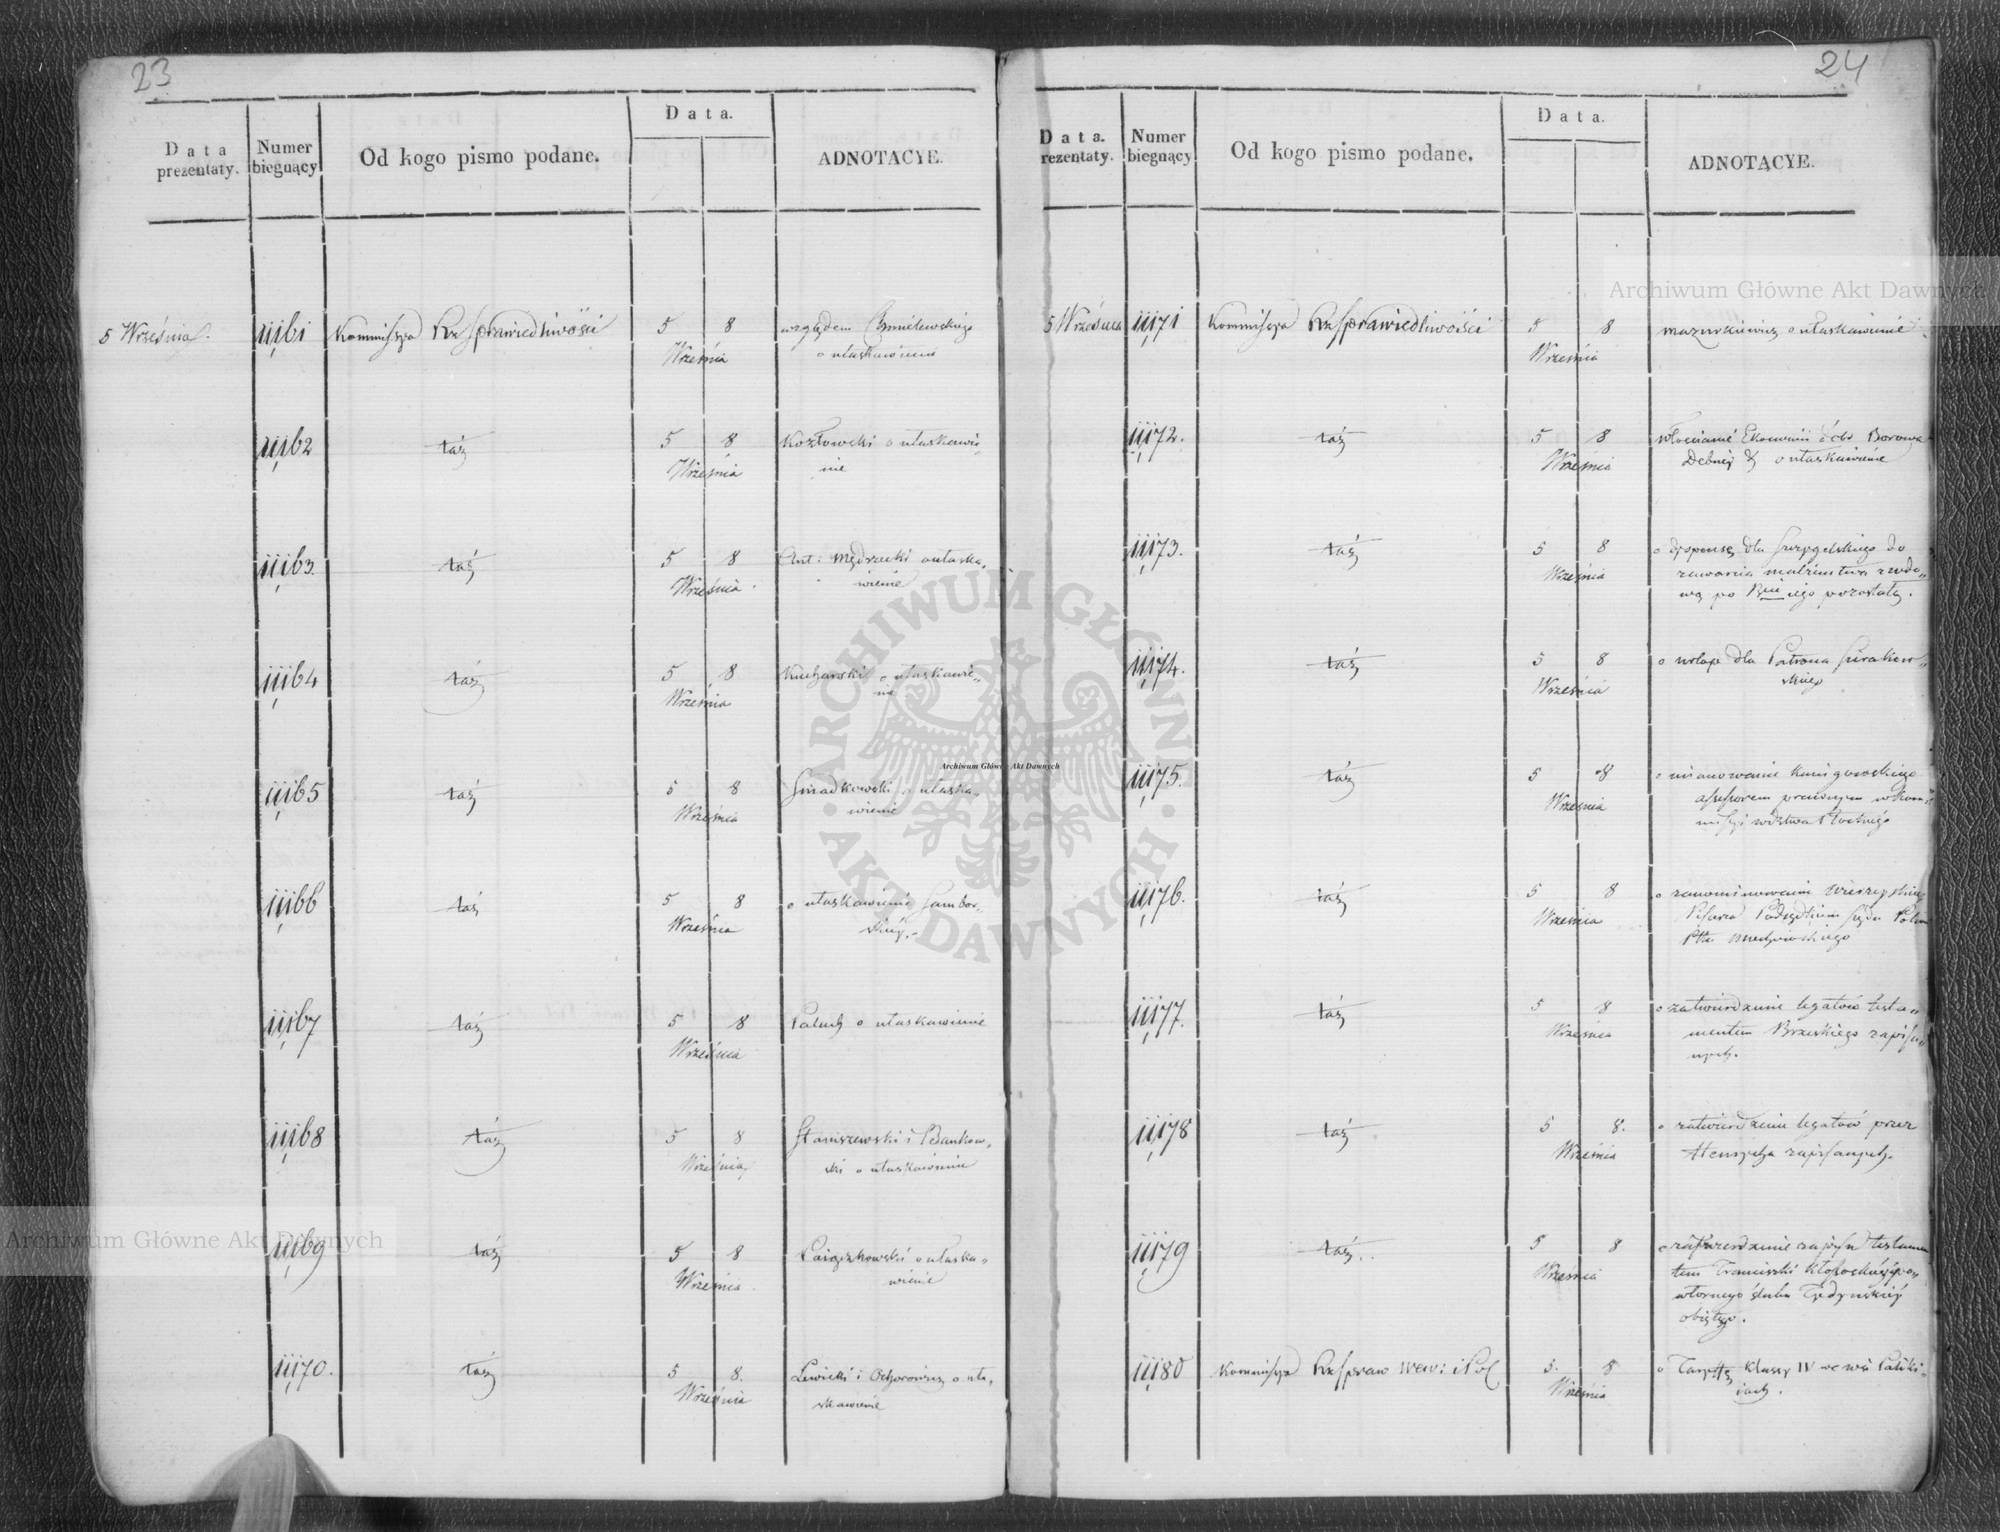 23
Data prezentaty.
Numer biegnący
Od kogo pismo podane.
Data.
ADNOTACYE.
5 Września.
11161
Kommissya Rz Sprawiedliwości
5 8
Września
względem Chmielewskiego
o ułaskawienie
11162
táż
5 8
Września
Kozłowski o ułaskawie
nie
11163
táż
5 8
Września
Ant: Mędrzecki o ułaska„
wienie
11164
táż
5 8
Września
Kucharski o ułaskawie„
nie
11165
táż
5 8
Września
o ułaska„
wienie
11166
táż
5 8
Września
o ułaskawienie Sambor„
skiéy.
11167
táż
5 8
Września
Paluch o ułaskawienie
11168
táż
5 8
Września
Staniszewski i Bankow„
ski o ułaskawienie
11169
táż
5 8
Września
o ułaska„
wienie
11170.
táż
5 8.
Września
Lewicki i Ochorowicz o uła„
skawienie
24
Data. rezentaty.
Numer biegnący
Od kogo pismo podane.
Data.
ADNOTACYE.
5 Września
11171
Kommissya Rz Sprawiedliwości
5 8
Września
Mazurkiewicz o ułaskawienie
11172.
táż
5 8
Września
włościanie Ekonomii Borowa
o ułaskawienie
11173.
táż
5 8
Września
o dyspensę dla do
zawarcia małżeństwa z wdo„
wą po pozostałą.
11174.
táż
5 8
Września
o urlop dla Patrona Sierakow„
skiego
11175.
táż
5 8
Września
o mianowanie
assessorem prawnym w Kom„
missyi wdztwa Płockiego
11176.
táż
5 8
Września
o zanominowanie
Pisarza Podsędkiem Sądu
Ptu Miechowskiego
11177.
táż
5 8
Września
o zatwierdzenie legatów testa„
mentem Brzeskiego zapisa„
nych.
11178
táż
5 8.
Września
o zatwierdzenie legatów przez
zapisanych.
11179
táż
5 8
Września
o zatwierdzenie zapisu testamen
tem Franciszki
wtórnego ślubu
objętego.
11180
Kommissya Rz Spraw Wew: i Pol
5. 8
Września
o Taryffę klassy IV we wsi
Archiwum Główne Akt Dawnych
Archiwum Główne Akt Dawnych
Archiwum Główne Akt Dawnych
ARCHIWUM GŁÓWNE AKT DAWNYCH